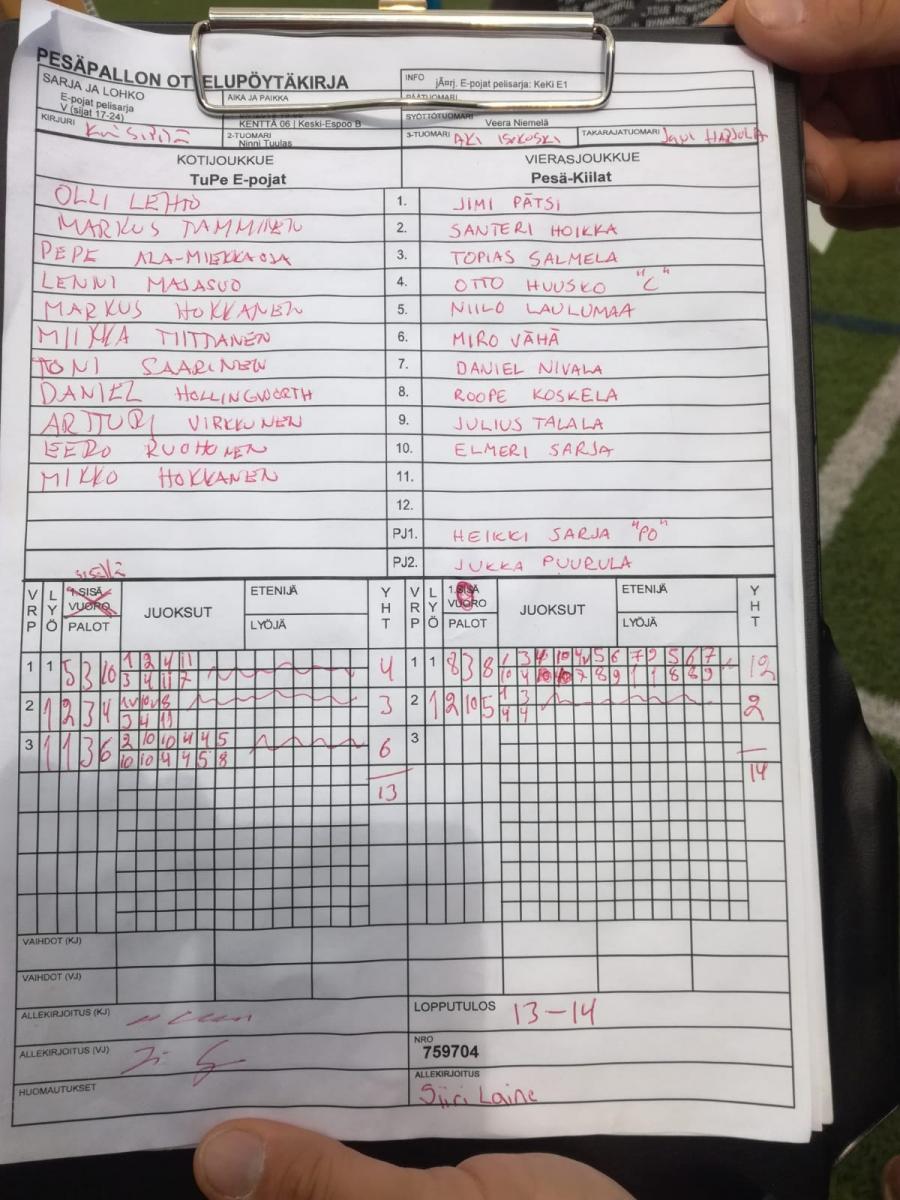 PESÄPALLON OTTELUPÖYTÄKIRJA
SARJA JA LOHKO
E-pojat pelisarja
V (sijat 17-24)
AIKA JA PAIKKA
KENTTÄ 06 | Keski-Espoo B
INFO jÃ¤rj. E-pojat pelisarja: KeKi E1
PÄÄTUOMARI
SYÖTTÖTUOMARI Veera Niemelä
KIRJURI
2-TUOMARI
Ninni Tuulas
3-TUOMARI AKI ISOKOSKI
TAKARAJATUOMARI JANI HARJULA
KOTIJOUKKUE
TuPe E-pojat
VIERASJOUKKUE
Pesä-Kiilat
OLLI LEHTO 1. JIMI PÄTSI
MARKUS TAMMINEN 2. SANTERI HOIKKA
PEPE ALA-MIEKKAOJA 3. TOPIAS SALMELA
LENNI MAJASUO 4. OTTO HUUSKO "C"
MARKUS HOKKANEN 5. NIILO LAULUMAA
MIIKKA TIITTANEN 6. MIRO VÄHÄ
TONI SAARINEN 7. DANIEL NIVALA
DANIEL HOLLINGWORTH 8. ROOPE KOSKELA
ARTTURI VIRKKUNEN 9. JULIUS TALALA
EERO RUOHONEN 10. ELMERI SARJA
MIKKO HOKKANEN 11.
12.
PJ1. HEIKKI SARJA "PO"
PJ2. JUKKA PUURULA
sisällä
VRP LYÖ 1.SISÄ VUORO PALOT JUOKSUT ETENIJÄ LYÖJÄ YHT VRP LYÖ 1.SISÄ VUORO PALOT JUOKSUT ETENIJÄ LYÖJÄ YHT
1 1 5 3 10 1 2 4 11 4 1 1 8 3 8 12
3 4 11 7
2 1 2 3 4 3 2 1 2 10 5 1 3 2
3 4 11 4 4
3 1 1 3 6 2 10 10 4 4 5 6 3
10 10 4 4 5 8
13 14
VAIHDOT (KJ)
VAIHDOT (VJ)
ALLEKIRJOITUS (KJ)
LOPPUTULOS 13-14
ALLEKIRJOITUS (VJ)
NRO
759704
HUOMAUTUKSET
ALLEKIRJOITUS
Siiri Laine